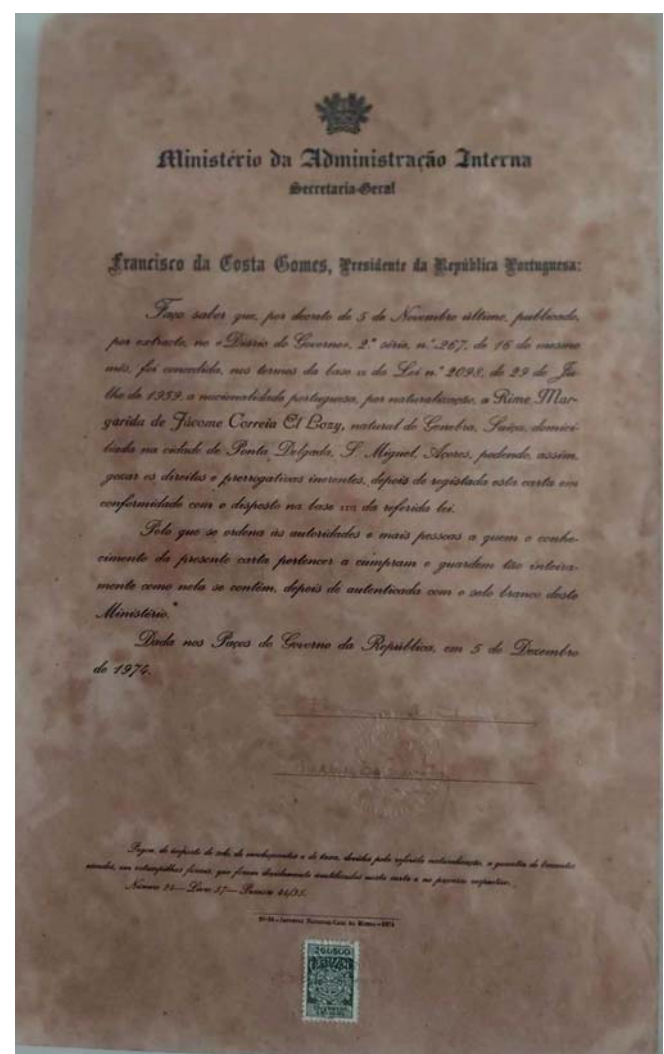 Ministério da Administração Interna
Secretaria-Geral
Francisco da Costa Gomes, Presidente da República Portuguesa:
Faço saber que, por decreto de 5 de Novembro último, publicado,
por extracto, no «Diário do Governo», 2.ª série, n.º 267, de 16 do mesmo
mês, foi concedida, nos termos da base da Lei n.º 2098, de 29 de Ju-
lho de 1959, a nacionalidade portuguesa, por naturalização, a Rime Mar-
garida de Jácome Correia El Bozy, natural de Genebra, Suíça, domici-
liada na cidade de Ponta Delgada, S. Miguel, Açores, podendo, assim,
gozar os direitos e prerrogativas inerentes, depois de registada esta carta em
conformidade com o disposto na base da referida lei.
Pelo que se ordena às autoridades e mais pessoas a quem o conhe-
cimento da presente carta pertencer a cumpram e guardem tão inteira-
mente como nela se contém, depois de autenticada com o selo branco deste
Ministério.
Dada nos Paços do Governo da República, em 5 de Dezembro
de 1974.
Pagou, de imposto do selo, de emolumentos e de taxa, devidos pela referida naturalização, a quantia de
escudos, em estampilhas fiscais, que foram devidamente inutilizadas nesta carta e no processo respectivo.
Número 94 — Livro 57 — Processo